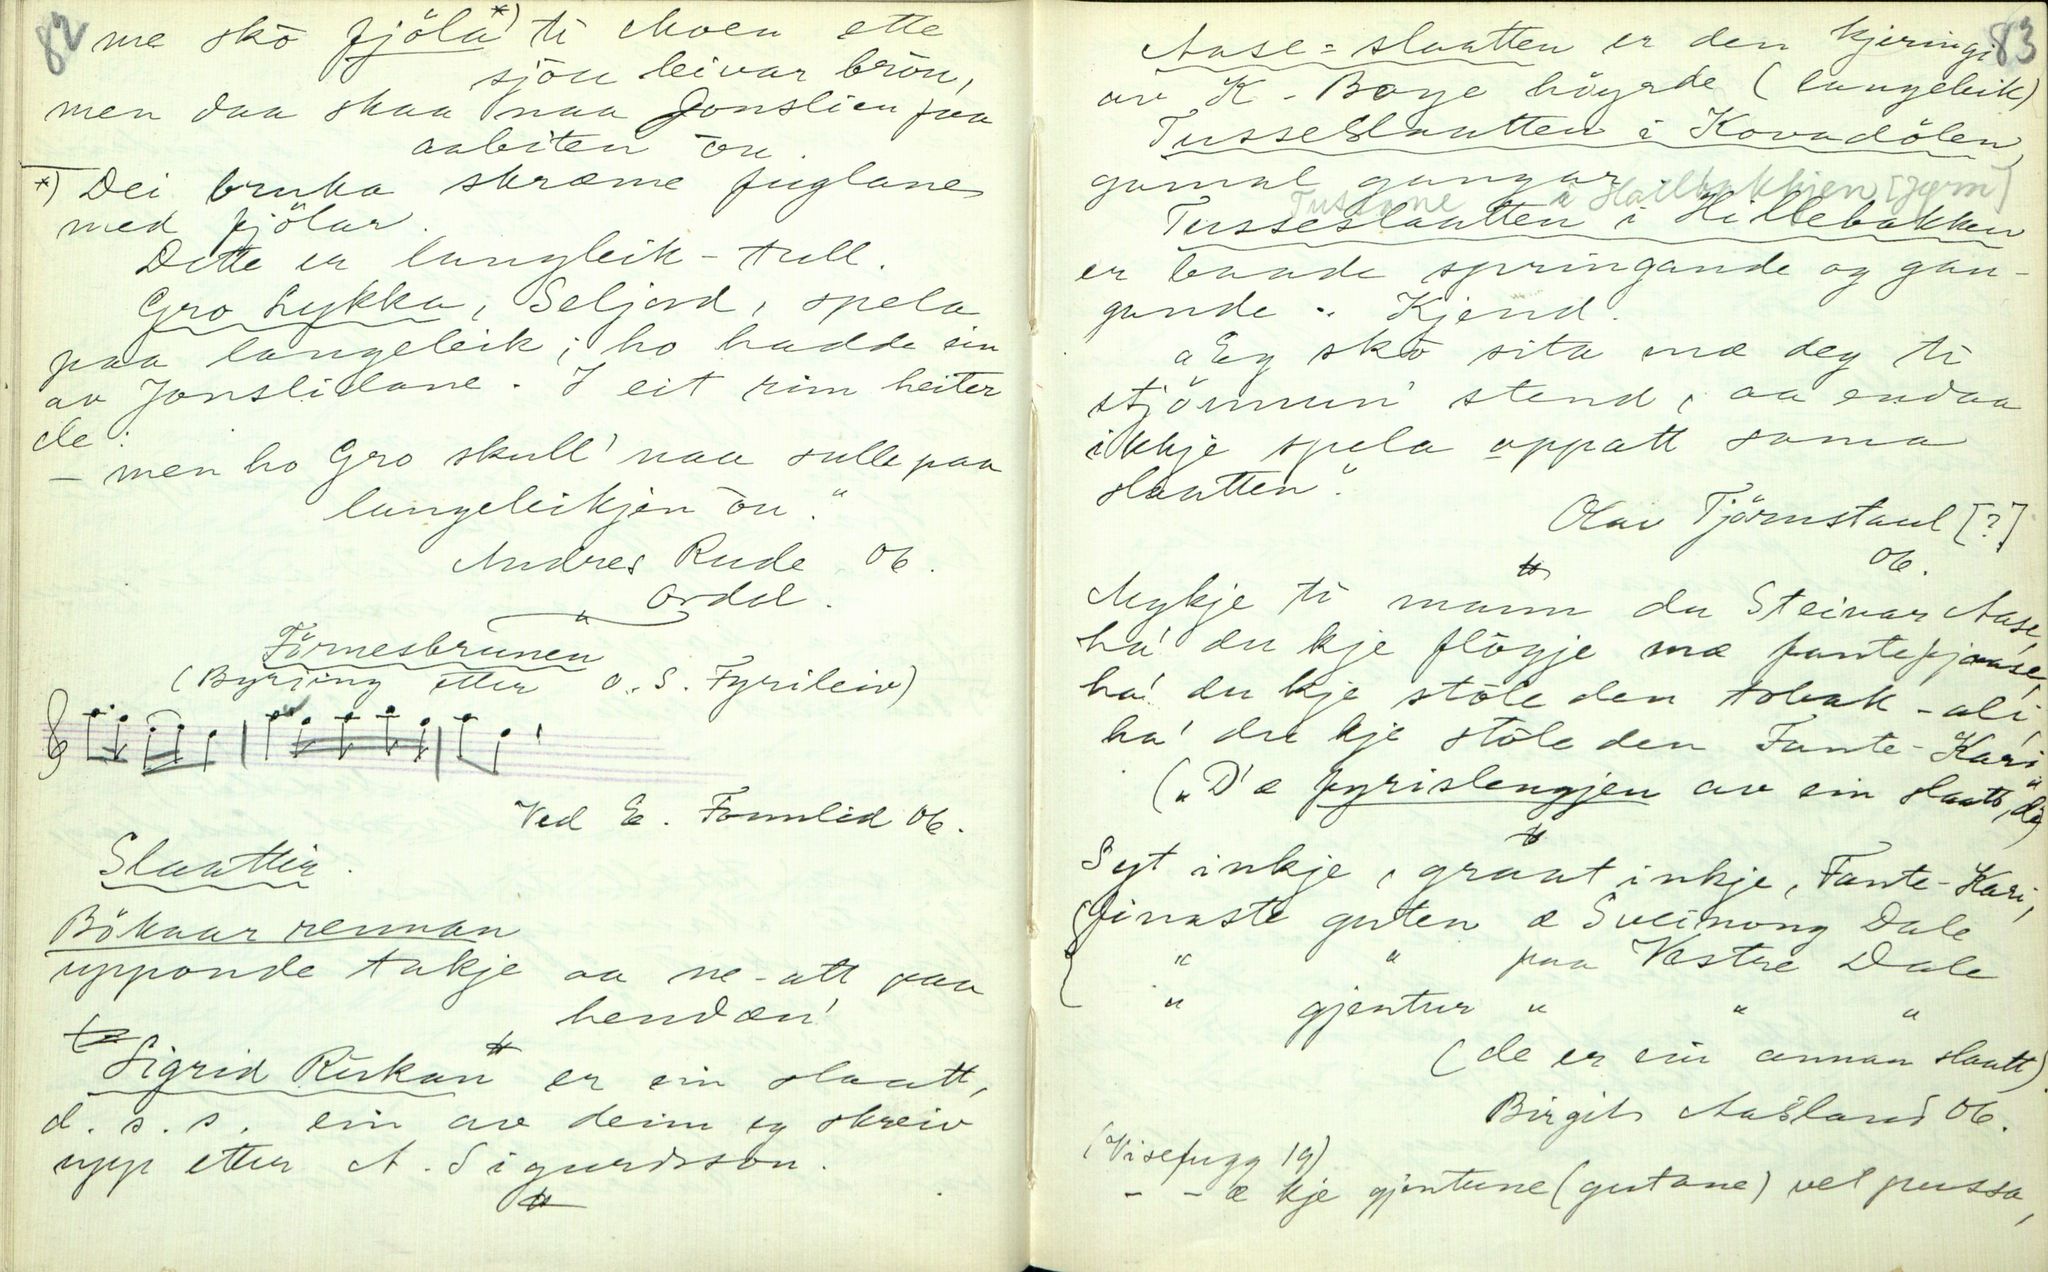 82
me skò fjöla*) ti Moen ette
sjòn leivar bròu,
men daa skaa naa Jonslien faa
aabiten òu.
*) Dei bruka skræme fuglane
med fjölar.
Dette er langleik-tull.
Gro Lykka, Seljord, spela
paa langeleik; ho hadde ein
av Jonslidane. I eit rim heiter
de:
- men ho Gro skull' naa sulle paa
langeleikjen òu."
Andres Rude 06.
Ordal.
Förnesbrunen
(Byrjing etter O. S. Fyrileiv)
Ved E. Fonnlid 06.
Slaattir.
Bökaar rennan
upponde takje aa ne-att paa
hendæn!
Sigrid Riskan er ein slaatt,
d. s. s. ein av deim eg skreiv
upp etter A. Sigurdsson.
83
Aase-slaatten er den kjeringi
av K. Boye höyrde (langeleik)
Tusseslaatten i Kovadölen,
gamal gangar
Tussane i Hallbakkjen [Jørn]
Tusseslaatten i Hillebakken
er baade springande og gan-
gande. Kjend.
"Eg skò sita mæ deg ti
stjönnun' stend, aa endaa
ikkje spela oppatt soma
slaatten".
Olav Tjörnstaul [?]
06.
Mykje ti mann du Steinar Aase,
ha' du kje flögje mæ fantepjaase,
ha' du kje stòle den tobak-ali,
ha' du kje stòle den Fante-Kari"
("D'æ fyrislengjen av ein slaatt, dæ)
Syt inkje, graat inkje, Fante-Kari,
finaste guten æ Sveinong Dale
" " paa Vestre Dale
" gjentur " " "
(de er ein annan slaatt).
Birgit Aasland 06.
(Visefugg 19)
- - æ kje gjentune (gutane) vel pussa,